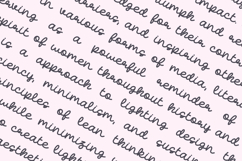 in
dged for their contri
carriers, and inspiring othe
in various forms of media, liter
erving as a powerful reminder of
spirit of women throughout history and
is a approach to lighting design t
ciency, minimalism, and sustain
principles of lean thinkin
while minimizing
o create light
aesthetic
umph and re